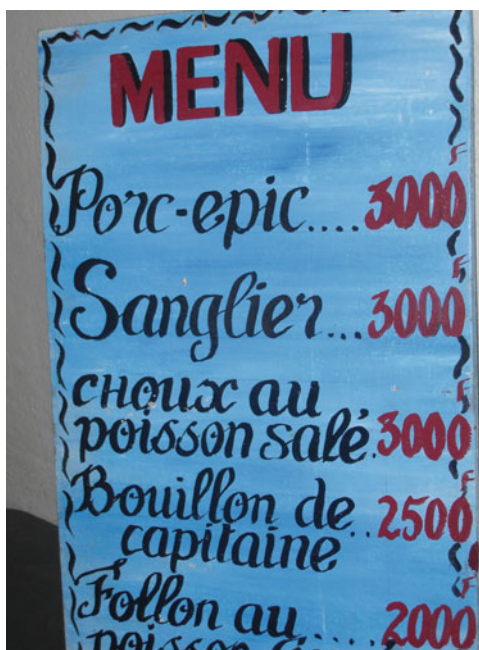 MENU
Porc-epic....3000F
Sanglier...3000F
CHOUX au
poisson salé.3000F
Bouillon de..2500F
capitaine
Follon au.....2000F
poisson